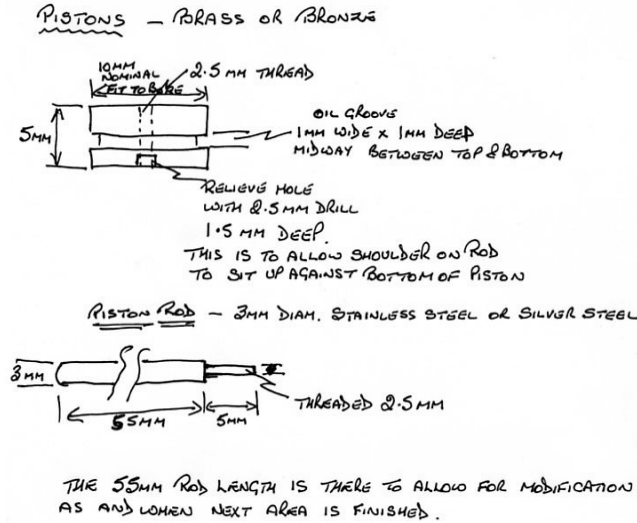 PISTONS — BRASS OR BRONZE
10MM
NOMINAL
FIT TO BORE
2.5 MM THREAD
5MM
OIL GROOVE
1MM WIDE x 1MM DEEP
MIDWAY BETWEEN TOP & BOTTOM
RELIEVE HOLE
WITH 2.5MM DRILL
1.5 MM DEEP.
THIS IS TO ALLOW SHOULDER ON ROD
TO SIT UP AGAINST BOTTOM OF PISTON
PISTON ROD — 3MM DIAM. STAINLESS STEEL OR SILVER STEEL
3MM
55MM
5MM
THREADED 2.5MM
THE 55MM ROD LENGTH IS THERE TO ALLOW FOR MODIFICATION
AS AND WHEN NEXT AREA IS FINISHED.